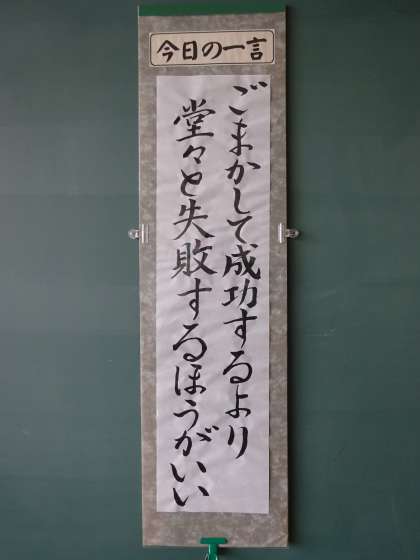 今日の一言
ごまかして成功するより
堂々と失敗するほうがいい